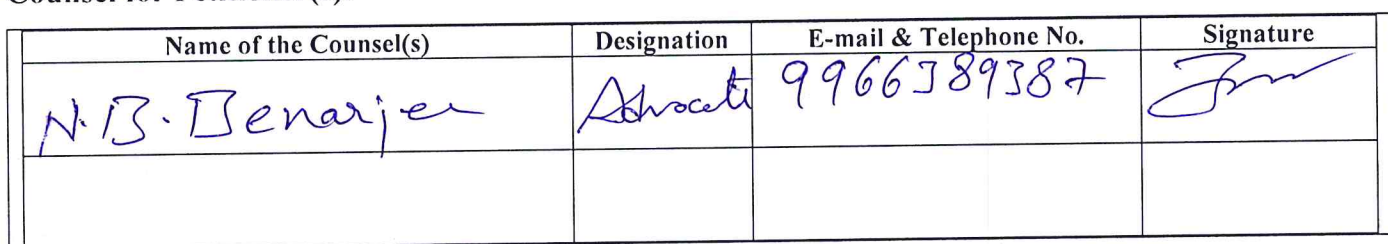 Name of the Counsel(s) Designation E-mail & Telephone No. Signature
N.B. Benarjee Advocate 9966389387